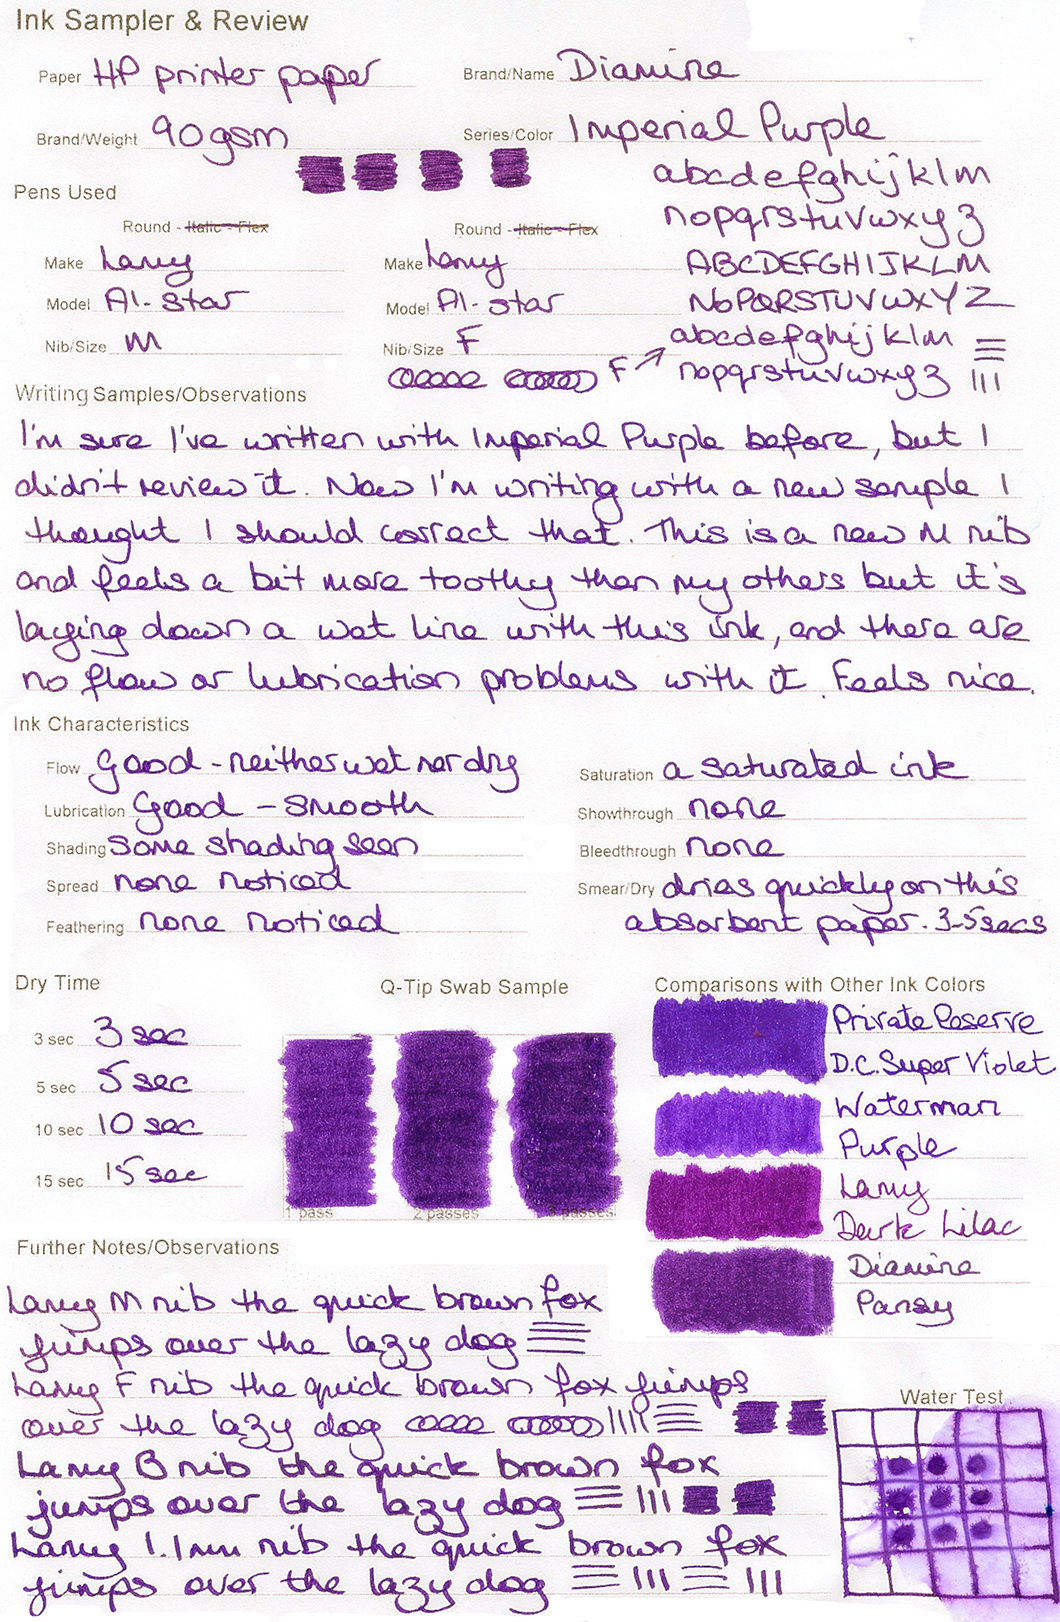 Ink Sampler & Review
Paper HP printer paper
Brand/Name Diamine
Brand/Weight 90gsm
Series/Color Imperial Purple
abcdefghijklm
nopqrstuvwxyz
ABCDEFGHIJKLM
NOPQRSTUVWXYZ
F abcdefghijklm
nopqrstuvwxyz
Pens Used
Round - Italic - Flex
Make Lamy
Model Al-Star
Nib/Size M
Round - Italic - Flex
Make Lamy
Model Al-star
Nib/Size F
Writing Samples/Observations
I'm sure I've written with Imperial Purple before, but I
didn't review it. Now I'm writing with a new sample I
thought I should correct that. This is a new M nib
and feels a bit more toothy than my others but it's
laying down a wet line with this ink, and there are
no flow or lubrication problems with it. Feels nice.
Ink Characteristics
Flow Good - neither wet nor dry
Lubrication Good - smooth
Shading Some shading seen
Spread none noticed
Feathering none noticed
Saturation a saturated ink
Showthrough none
Bleedthrough none
Smear/Dry dries quickly on this
absorbent paper. 3-5secs
Dry Time
3 sec 3 sec
5 sec 5 sec
10 sec 10 sec
15 sec 15 sec
Q-Tip Swab Sample
1 pass
2 passes
3 passes
Comparisons with Other Ink Colors
Private Reserve
D.C. Super Violet
Waterman
Purple
Lamy
Dark Lilac
Diamine
Pansy
Further Notes/Observations
Lamy M nib the quick brown fox
jumps over the lazy dog
Lamy F nib the quick brown fox jumps
over the lazy dog
Lamy B nib the quick brown fox
jumps over the lazy dog
Lamy 1.1mm nib the quick brown fox
jumps over the lazy dog
Water Test